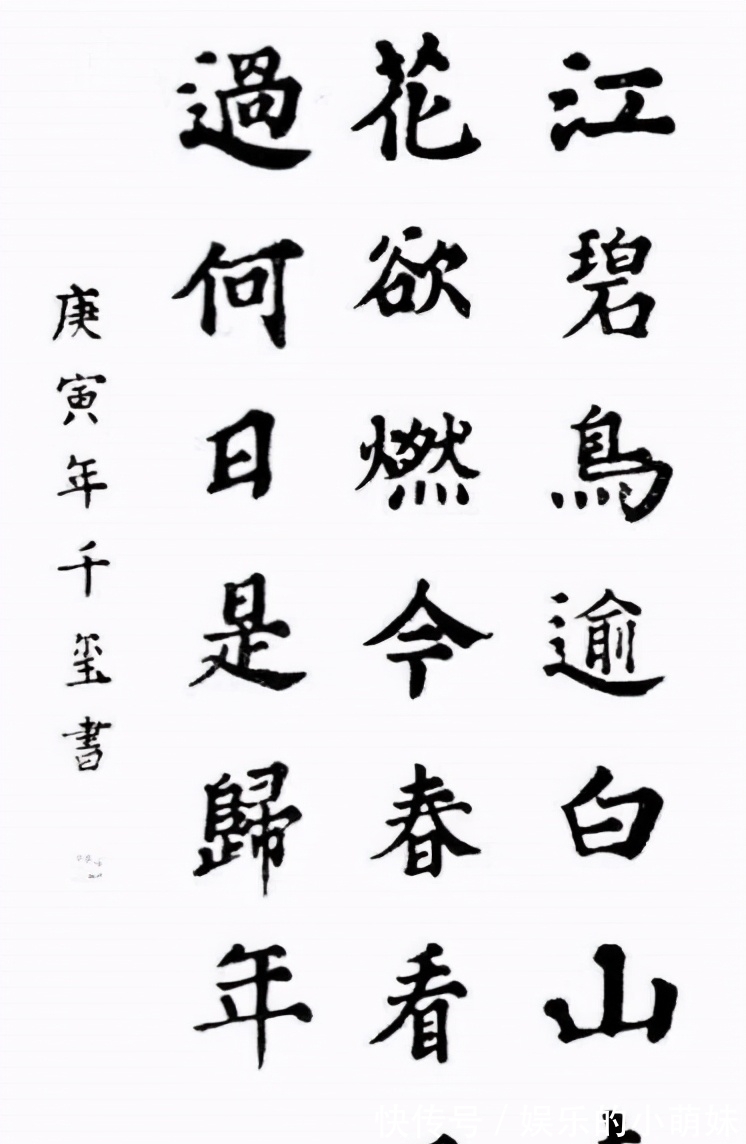 江碧鳥逾白山
花欲燃今春看
過何日是歸年
庚寅年千玺書
快传号 / 娱乐的小萌妹